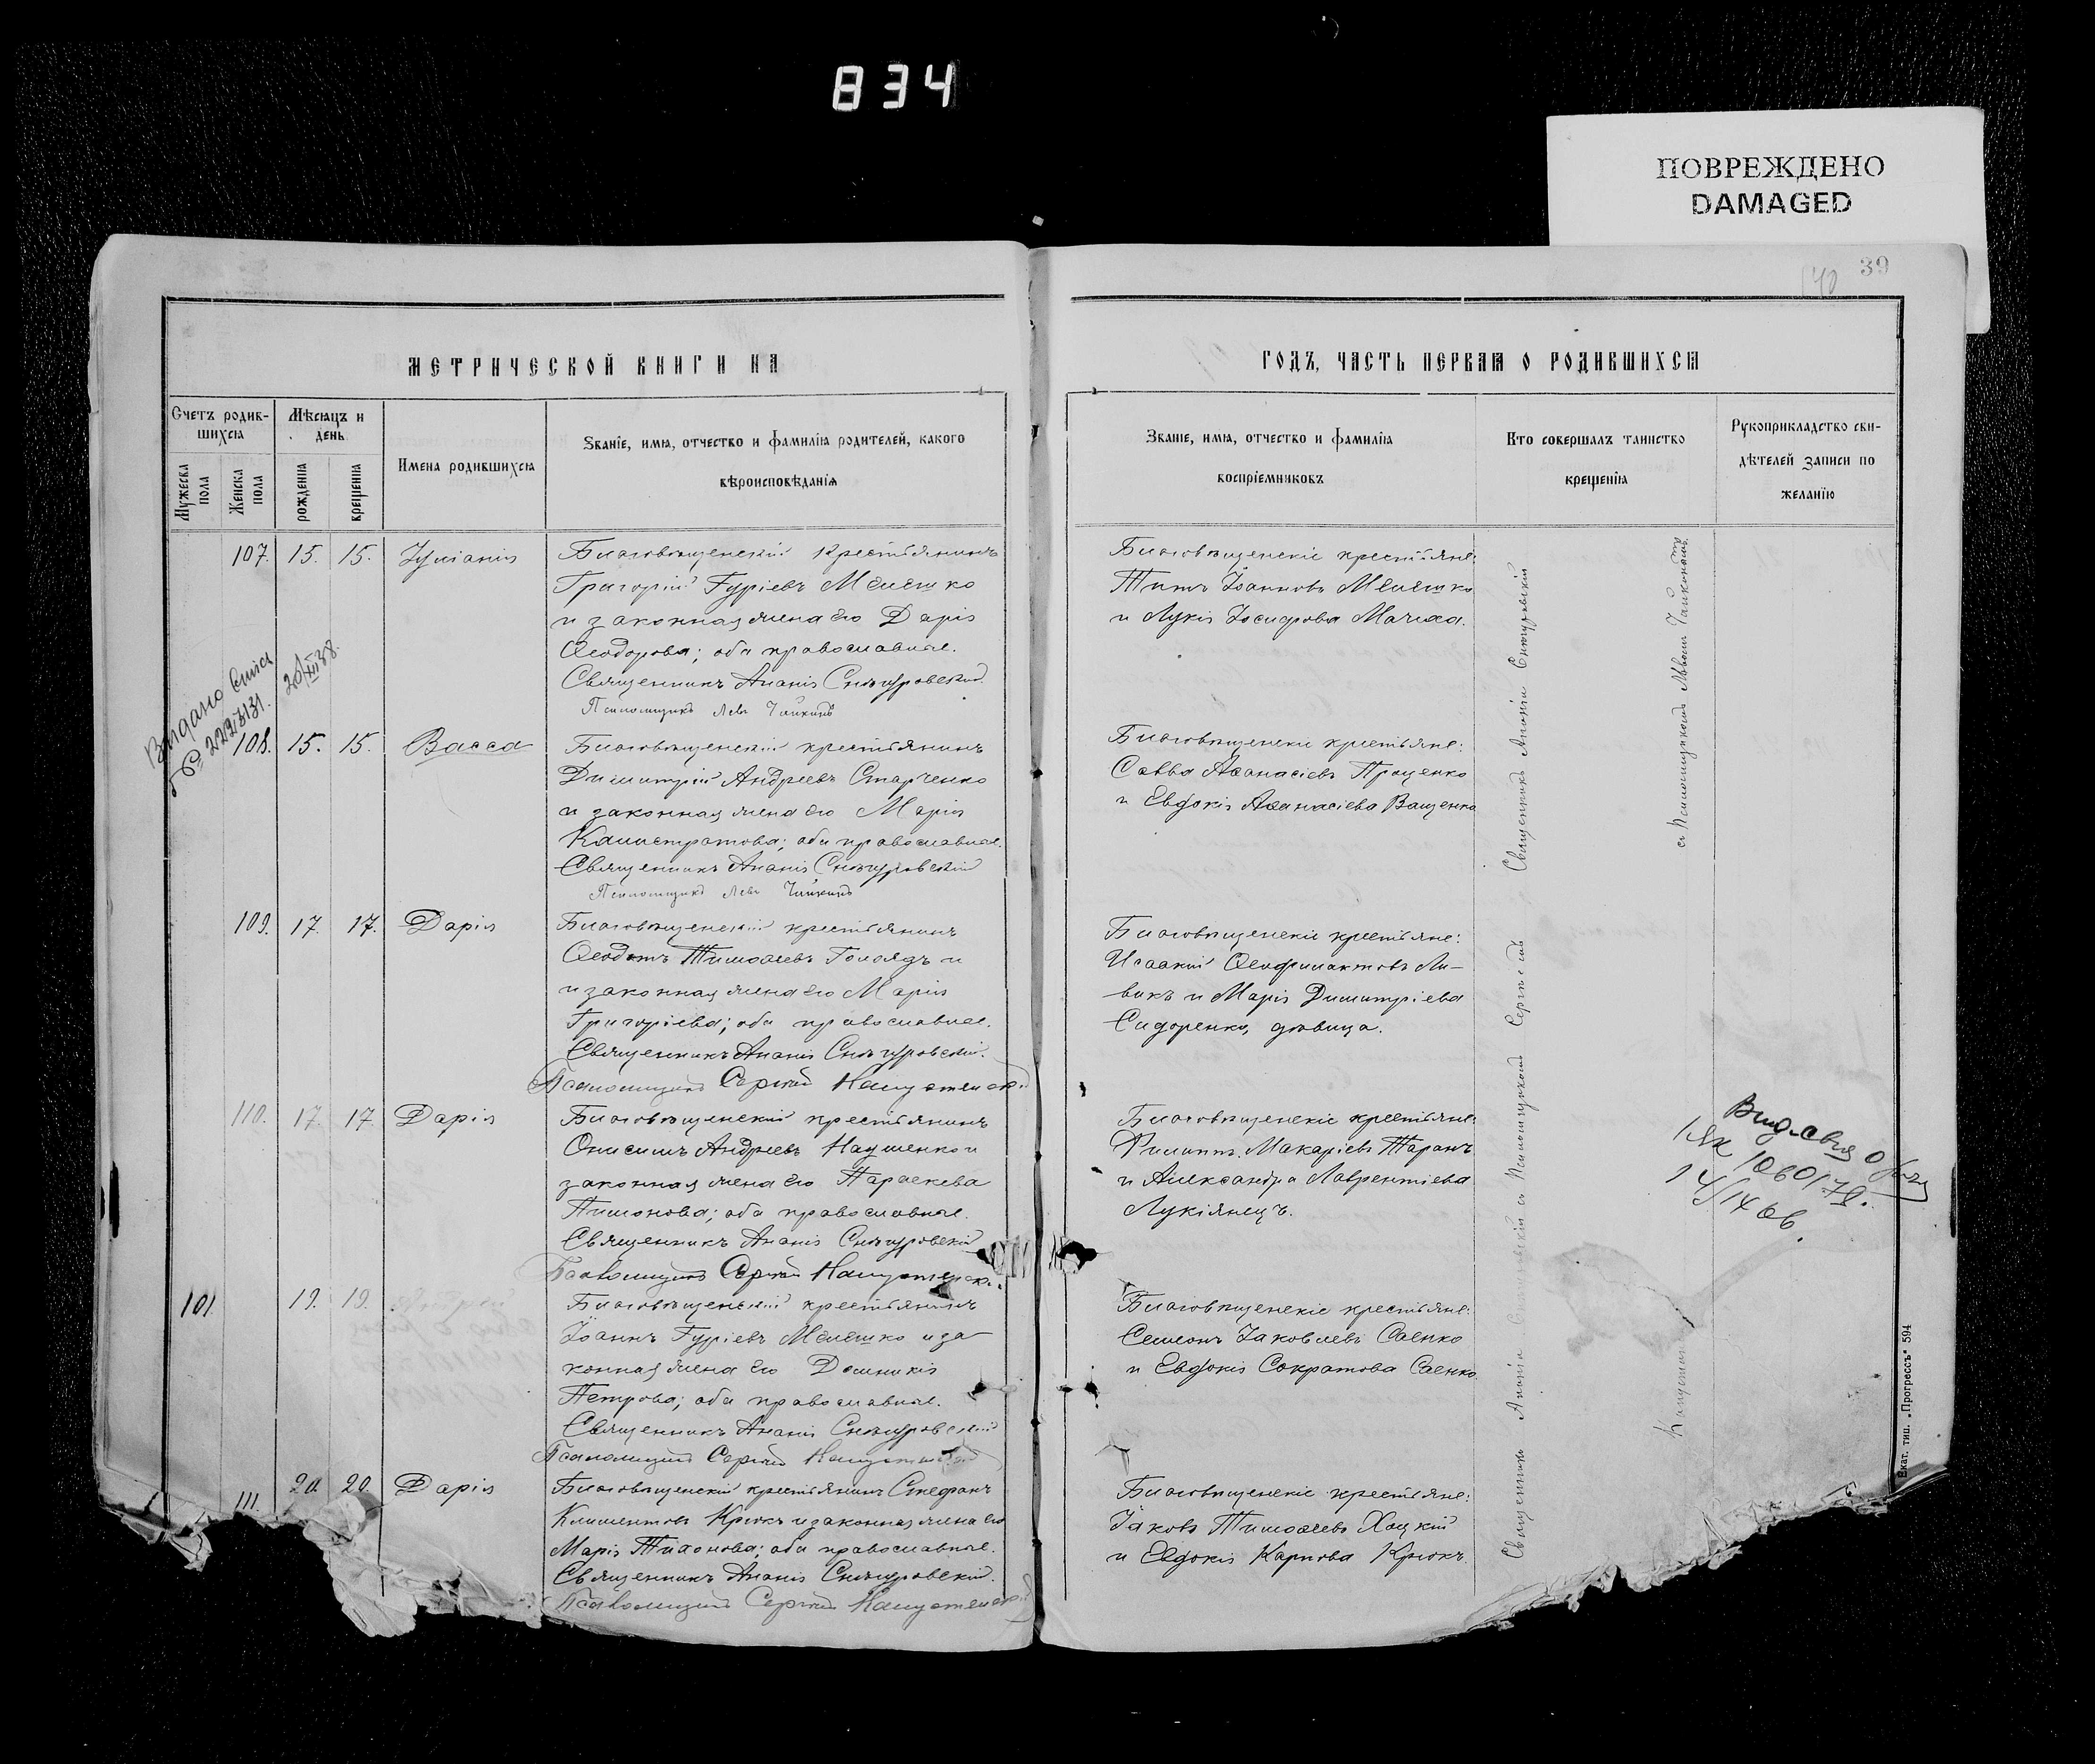 834
ПОВРЕЖДЕНО
DAMAGED
39
140
МЕТРИЧЕСКОЙ КНИГИ НА
ГОДЪ, ЧАСТЬ ПЕРВАЯ О РОДИВШИХСЯ
Счетъ родив-
шихся
Мѣсяцъ и
день
Мужеска
пола
Женска
пола
рожденія
крещенія
Имена родившихся
Званіе, имя, отчество и фамилія родителей, какого
вѣроисповѣданія
Званіе, имя, отчество и фамилія
воспріемниковъ
Кто совершалъ таинство
крещенія
Рукоприкладство сви-
дѣтелей записи по
желанію
107. 15. 15. Іуліанія
Благовѣщенскій крестьянинъ
Григорій Гуріевъ Мелешко
и законная жена его Дарія
Ѳеодорова; оба православные.
Священникъ Ананія Снѣгуровскій
Псаломщикъ Левъ Чайкинъ
Благовѣщенскіе крестьяне:
Титъ Іоанновъ Мелешко
и Лукія Іосифова Мачиха.
Видано
№ 2223131. 20/XII 38.
108. 15. 15. Васса
Благовѣщенскій крестьянинъ
Димитрій Андреевъ Старченко
и законная жена его Марія
Каллистратова; оба православные.
Священникъ Ананія Снѣгуровскій
Псаломщикъ Левъ Чайкинъ
Благовѣщенскіе крестьяне:
Савва Аѳанасіевъ Проценко
и Евдокія Аѳанасіева Ващенко
109. 17. 17. Дарія
Благовѣщенскій крестьянинъ
Ѳеодотъ Тимоѳеевъ Голоядъ и
и законная жена его Марія
Григоріева; оба православные.
Священникъ Ананія Снѣгуровскій.
Псаломщикъ Сергій
Благовѣщенскіе крестьяне:
Исаакій Ѳеофилактовъ Ли-
викъ и Марія Димитріева
Сидоренко, дѣвица.
110. 17. 17. Дарія
Благовѣщенскій крестьянинъ
Онисимъ Андреевъ Науменко и
законная жена его Параскева
Пимонова; оба православные.
Священникъ Ананія Снѣгуровскій
Псаломщикъ Сергій
Благовѣщенскіе крестьяне:
Филиппъ Макаріевъ Таранъ
и Александра Лаврентіева
Лукіянецъ.
101. 19. 19.
Благовѣщенскій крестьянинъ
Іоаннъ Гуріевъ Мелешко и за-
конная жена его Домникія
Петрова; оба православные.
Священникъ Ананія Снѣгуровскій
Псаломщикъ Сергій
Благовѣщенскіе крестьяне:
Симеонъ Іаковлевъ Саенко
и Евдокія Сократова Саенко
111. 20. 20. Дарія
Благовѣщенскій крестьянинъ Стефанъ
Климентовъ Крюкъ и законная жена его
Марія Тихонова; оба православные.
Священникъ Ананія Снѣгуровскій.
Псаломщикъ Сергій
Благовѣщенскіе крестьяне:
Іаковъ Тимоѳеевъ Хацкій
и Евдокія Карпова Крюкъ.
Священникъ Ананія Снѣгуровскій
съ Псаломщикомъ Львомъ Чайкинымъ
Священникъ Ананія Снѣгуровскій съ Псаломщикомъ Сергіемъ
Екат. тип. „Прогрессъ" 594